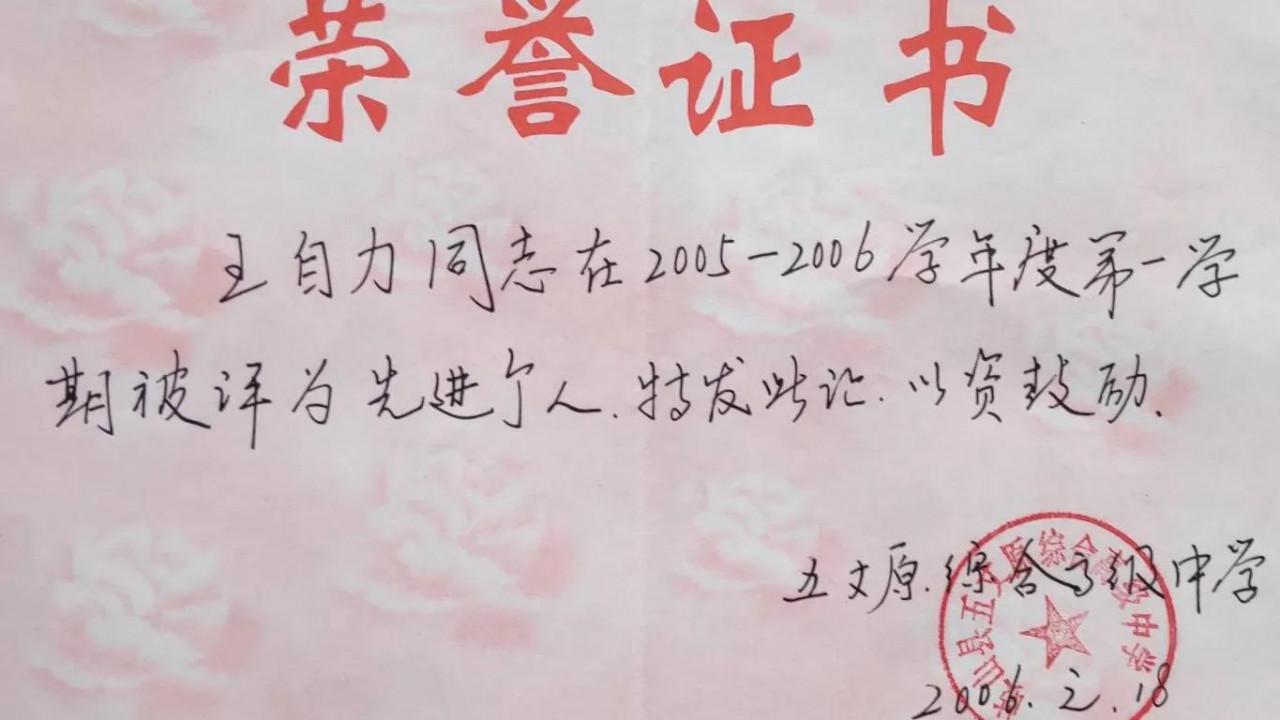 荣誉证书
王自力同志在2005-2006学年度第一学
期被评为先进个人.特发此证.以资鼓励.
五丈原综合高级中学
山县五丈原综合高级中学
2006.2.18